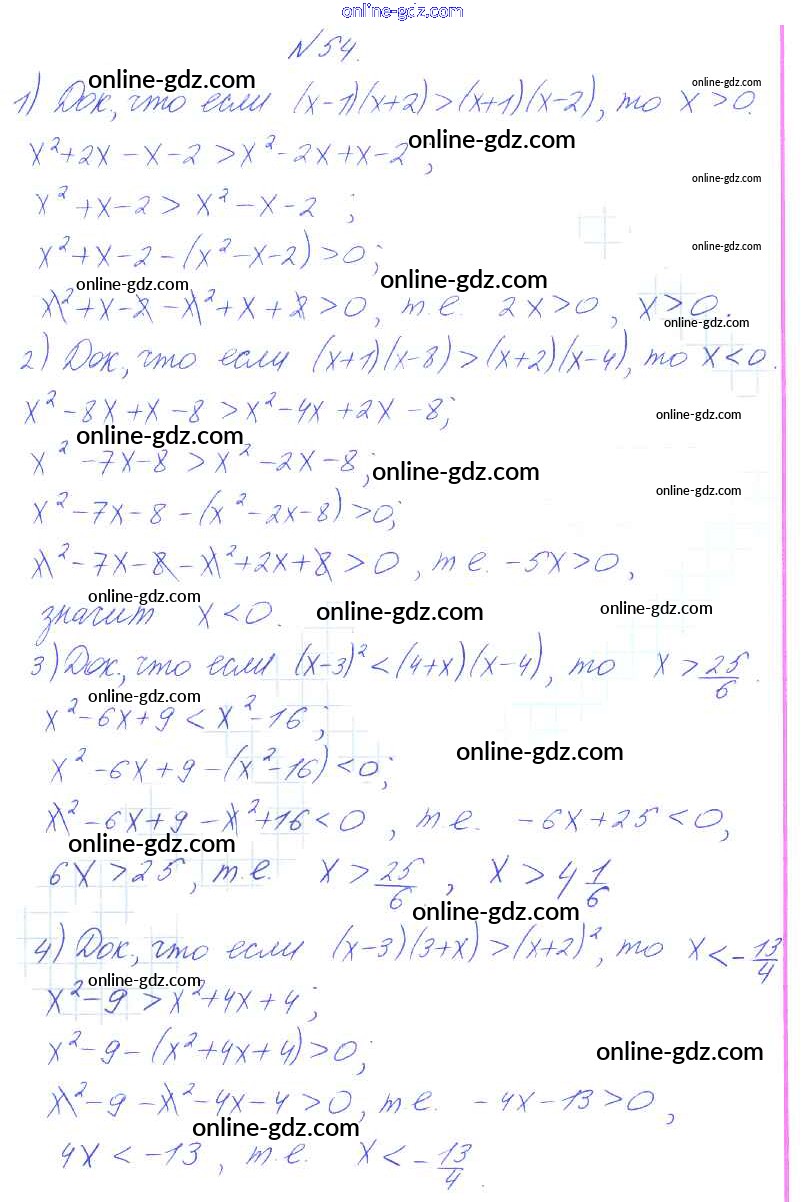 online-gdz.com
N 54.
online-gdz.com online-gdz.com
1) Док, что если (x-1)(x+2)>(x+1)(x-2), то x>0.
online-gdz.com
x²+2x-x-2>x²-2x+x-2;
online-gdz.com
x²+x-2>x²-x-2;
online-gdz.com
x²+x-2-(x²-x-2)>0;
online-gdz.com online-gdz.com
x²+x-2-x²+x+2>0, т.е. 2x>0, x>0.
online-gdz.com
2) Док, что если (x+1)(x-8)>(x+2)(x-4), то x<0.
x²-8x+x-8>x²-4x+2x-8;
online-gdz.com
online-gdz.com
x²-7x-8>x²-2x-8;
online-gdz.com
online-gdz.com
x²-7x-8-(x²-2x-8)>0;
x²-7x-8-x²+2x+8>0, т.е. -5x>0,
online-gdz.com
значит x<0.
online-gdz.com online-gdz.com
3) Док, что если (x-3)²<(4+x)(x-4), то x>25/6.
online-gdz.com
x²-6x+9<x²-16;
online-gdz.com
x²-6x+9-(x²-16)<0;
x²-6x+9-x²+16<0, т.е. -6x+25<0,
online-gdz.com
6x>25, т.е. x>25/6, x>4 1/6
online-gdz.com
4) Док, что если (x-3)(3+x)>(x+2)², то x<-13/4
online-gdz.com
x²-9>x²+4x+4;
x²-9-(x²+4x+4)>0;
online-gdz.com
x²-9-x²-4x-4>0, т.е. -4x-13>0,
online-gdz.com
4x<-13, т.е. x<-13/4.